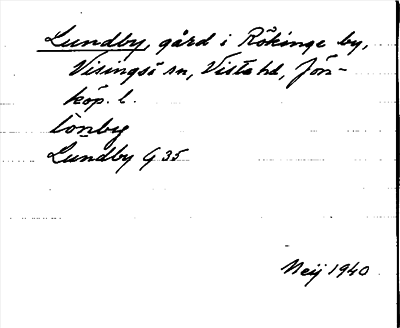 Lundby, gård i Rökinge by,
Visingsö sn, Vista hd, Jön-
köp. l.
lònby
Lundby G 35
Neij 1940